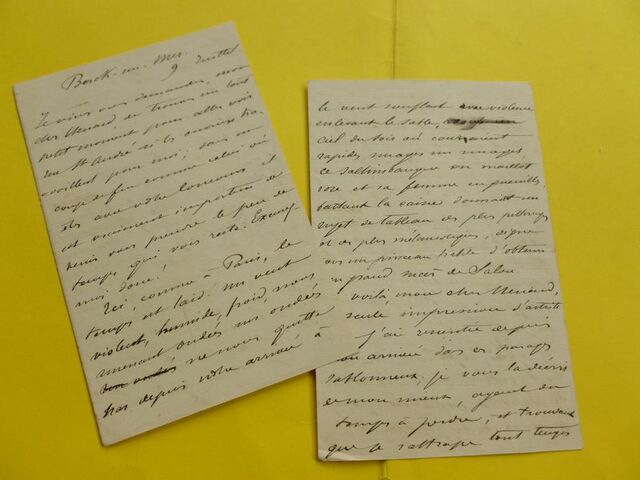 Berck-sur-Mer.
9 Juillet
Je viens vous demander, mon
cher Menard de trouver un tout
petit moment pour aller voir
rue St André si les ouvriers tra-
vaillent pour moi; sans un
coup de feu comme celui où
ils avec votre concours, il
est vraiment importun de
venir vous prendre le peu de
temps qui vous reste. Excusez
moi, donc!
Ici, comme à Paris, le
temps est laid: un vent
violent, humide, froid, nous
amenant ondées sur ondées
ne nous quitte
pas depuis notre arrivée à
le vent soufflant avec violence
enlevant le sable,
ciel du soir où couraient
rapides nuages sur nuages
ce saltimbanque en maillot
rose et sa femme en guenilles
battant la caisse donnait un
sujet de tableau des plus pittores
et des plus mélancoliques, digne
sous un pinceau habile d'obtenir
un grand succès de Salon.
Voilà, mon cher Menard,
seule impression d'artiste
j'ai ressentie depuis
arrivée dans ces parages
sablonneux; je vous la décris
de mon mieux, ayant du
temps à perdre, et trouvant
que ça rattrape tout temps